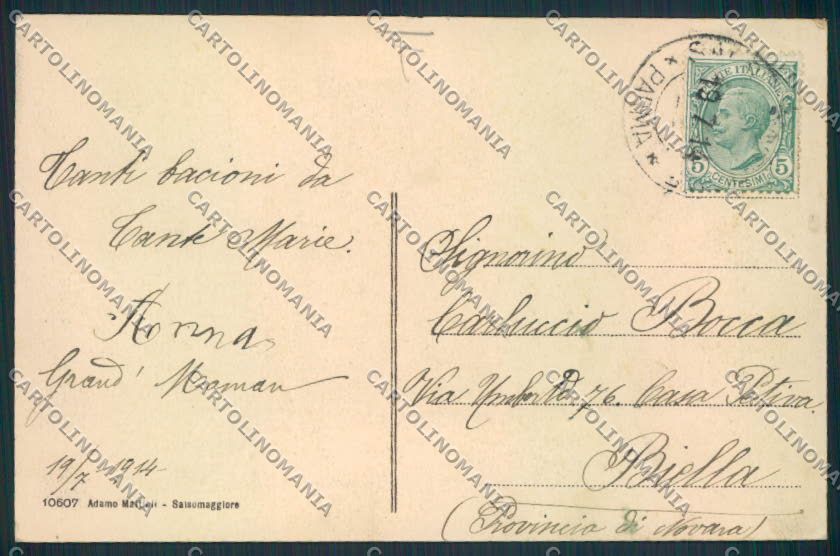 Tanti bacioni da
Tante Marie.
Anna
Grand' Maman
19/7 1914
10607 Adamo Mattioli - Salsomaggiore
POSTE ITALIANE
5 CENTESIMI 5
PARMA
19.7.14
Signorino
Carluccio Bocca
Via Umberto 76. Casa
Biella
(Provincia di Novara)
CARTOLINOMANIA